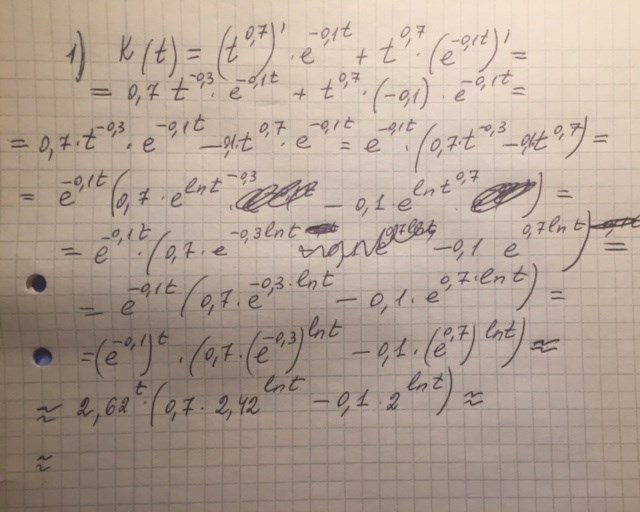 1) K(t) = (t^0,7)' · e^-0,1t + t^0,7 · (e^-0,1t)' =
= 0,7 t^-0,3 · e^-0,1t + t^0,7 · (-0,1) · e^-0,1t =
= 0,7 · t^-0,3 · e^-0,1t - 0,1 · t^0,7 · e^-0,1t = e^-0,1t · (0,7 · t^-0,3 - 0,1 t^0,7) =
= e^-0,1t (0,7 · e^ln t^-0,3 - 0,1 · e^ln t^0,7) =
= e^-0,1t · (0,7 · e^-0,3 ln t - 0,1 e^0,7 ln t) =
= e^-0,1t (0,7 · e^-0,3 · ln t - 0,1 · e^0,7 · ln t) =
= (e^-0,1)^t · (0,7 · (e^-0,3)^ln t - 0,1 · (e^0,7)^ln t) ≈
≈ 2,62^t · (0,7 · 2,42^ln t - 0,1 · 2^ln t) ≈
≈